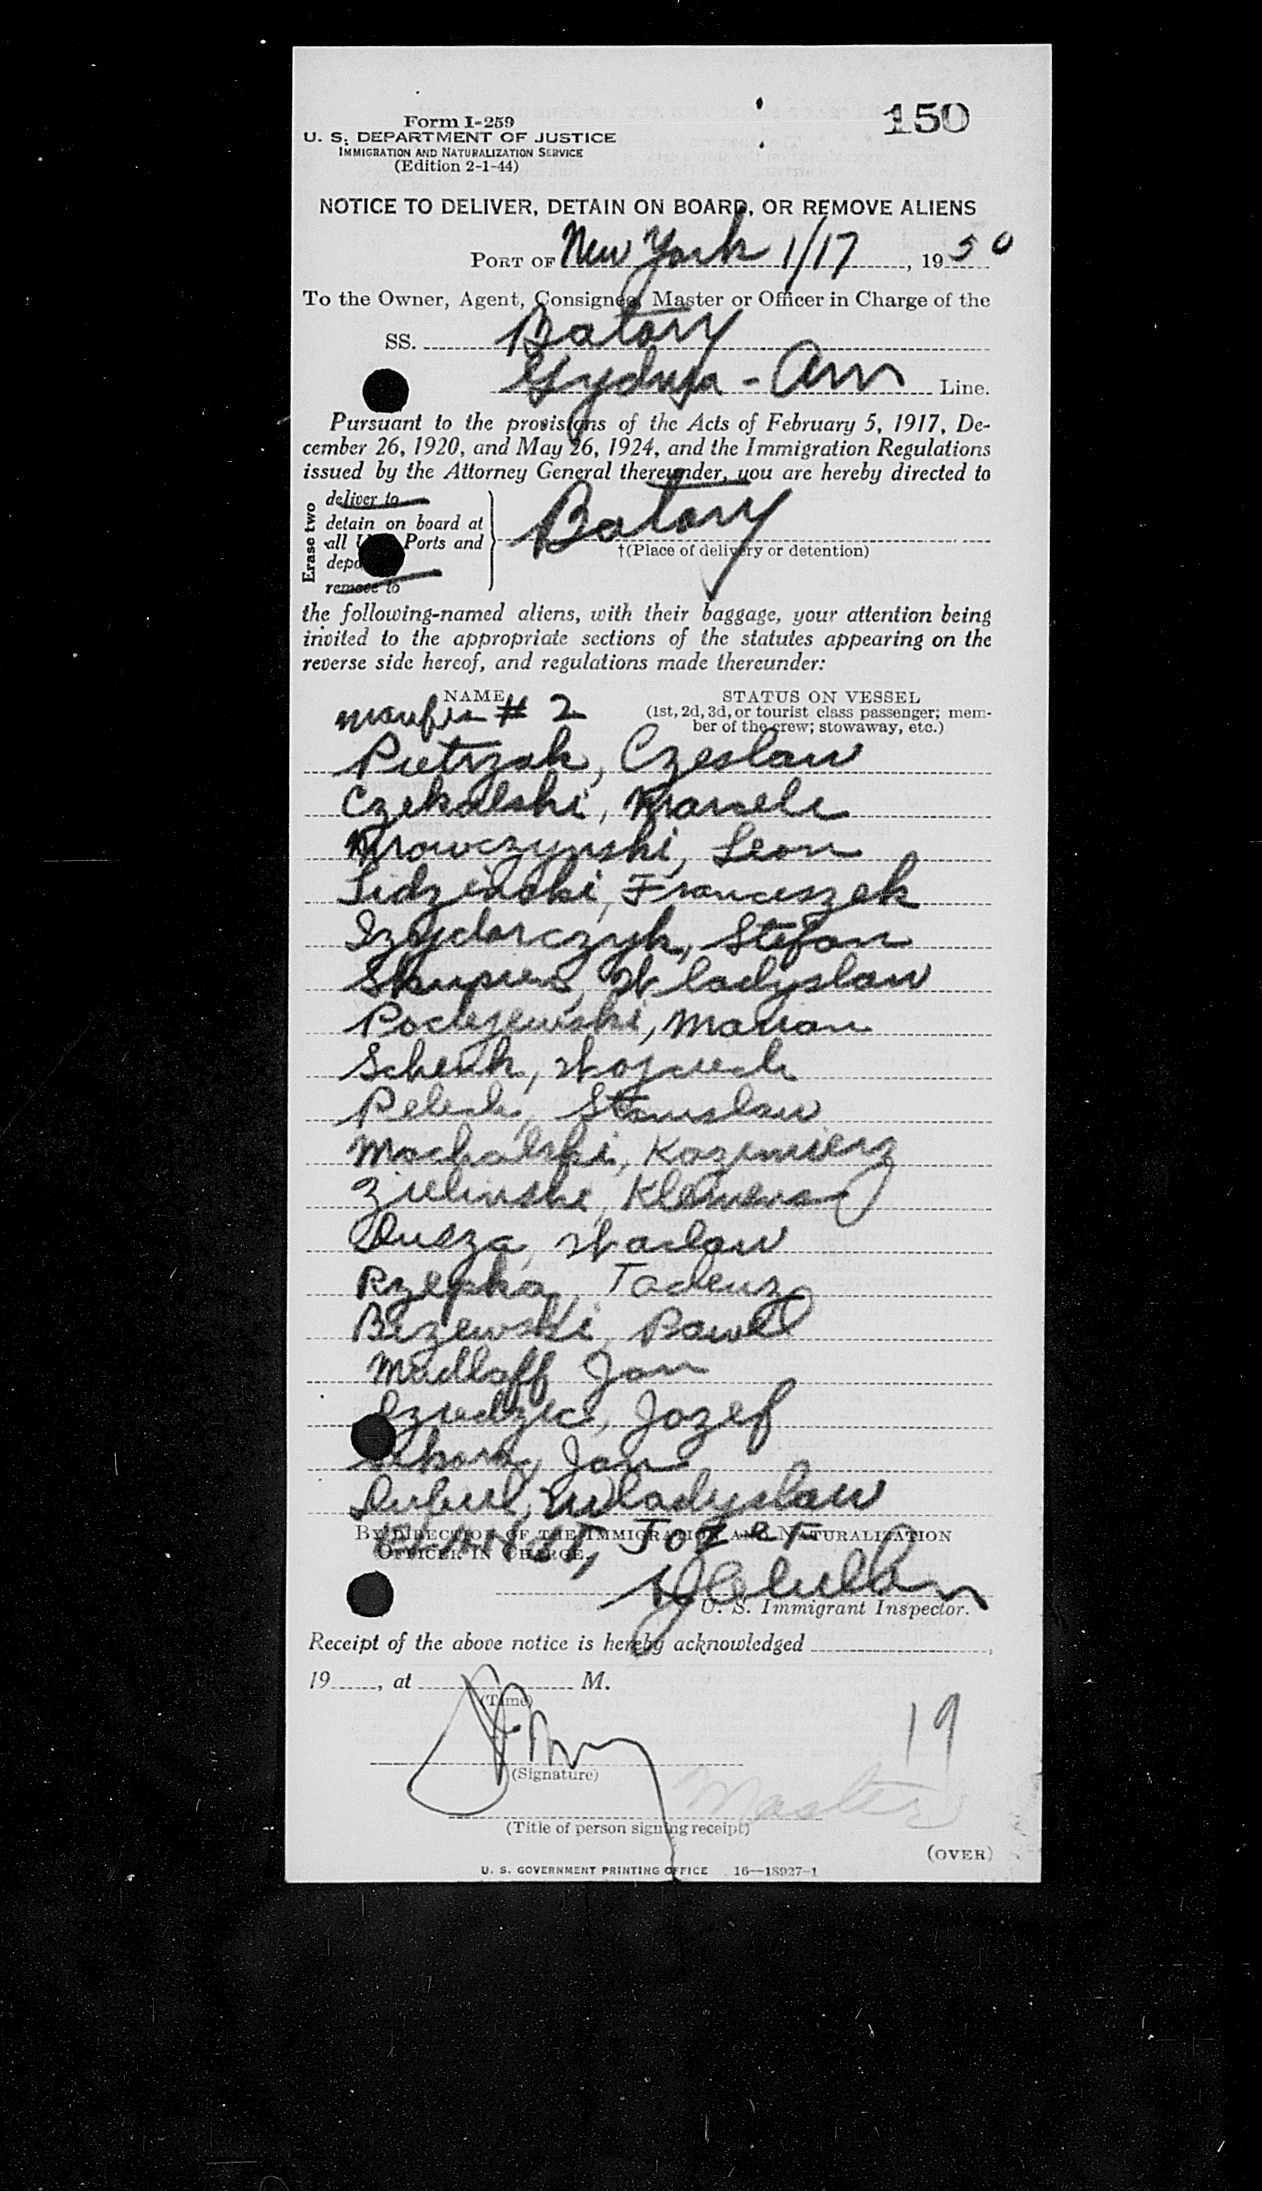 150
Form I-259
U. S. DEPARTMENT OF JUSTICE
IMMIGRATION AND NATURALIZATION SERVICE
(Edition 2-1-44)
NOTICE TO DELIVER, DETAIN ON BOARD, OR REMOVE ALIENS
PORT OF New York 1/17, 1950
To the Owner, Agent, Consignee, Master or Officer in Charge of the
SS. Batory
Gydnia - Am Line.
Pursuant to the provisions of the Acts of February 5, 1917, De-
cember 26, 1920, and May 26, 1924, and the Immigration Regulations
issued by the Attorney General thereunder, you are hereby directed to
Erase two
deliver to
detain on board at
all Ports and
remove to
Batory
†(Place of delivery or detention)
the following-named aliens, with their baggage, your attention being
invited to the appropriate sections of the statutes appearing on the
reverse side hereof, and regulations made thereunder:
NAME
STATUS ON VESSEL
(1st, 2d, 3d, or tourist class passenger; mem-
ber of the crew; stowaway, etc.)
# 2
Pietrzak, Czeslaw
Czekalski,
Mrowczynski, Leon
Franciszek
Izydorczyk, Stefan
Wladyslaw
Marian
Schenk, Wojciech
Stanislaw
Machalski, Kazimierz
Zielinski, Klemens
Dusza, Waclaw
Rzepka, Tadeusz
Pawel
Mudlaff Jan
Jozef
Jan
Wladyslaw
BY DIRECTION OF THE IMMIGRATION AND NATURALIZATION
OFFICER IN CHARGE.
Jozef
U. S. Immigrant Inspector.
Receipt of the above notice is hereby acknowledged
19, at M.
(Time)
19
(Signature)
Master
(Title of person signing receipt)
(OVER)
U. S. GOVERNMENT PRINTING OFFICE 16—18927-1